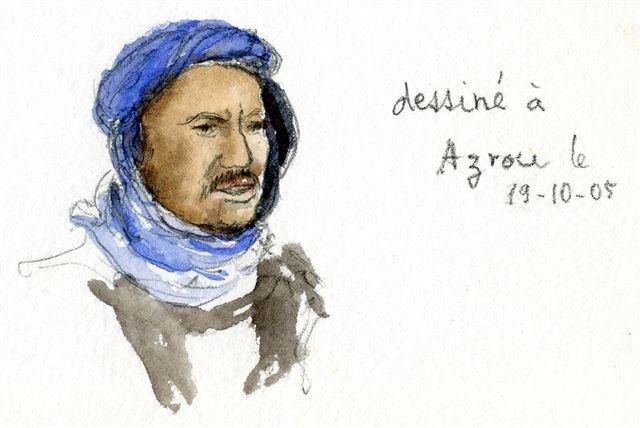 dessiné à
Azrou le
19-10-05